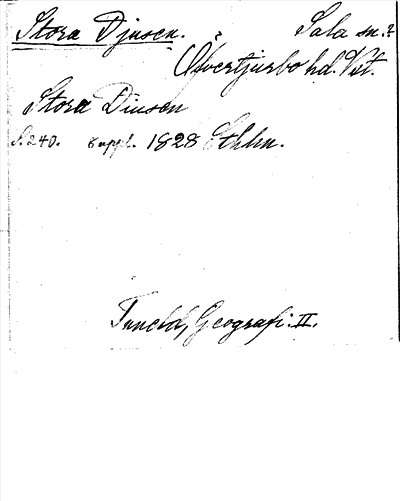 Stora Djusen. Sala sn.?
Övertjurbo hd. Vst.
Stora Diusen
S. 240. suppl. 1828 Ethln.
Tuneld, Geografi. II.